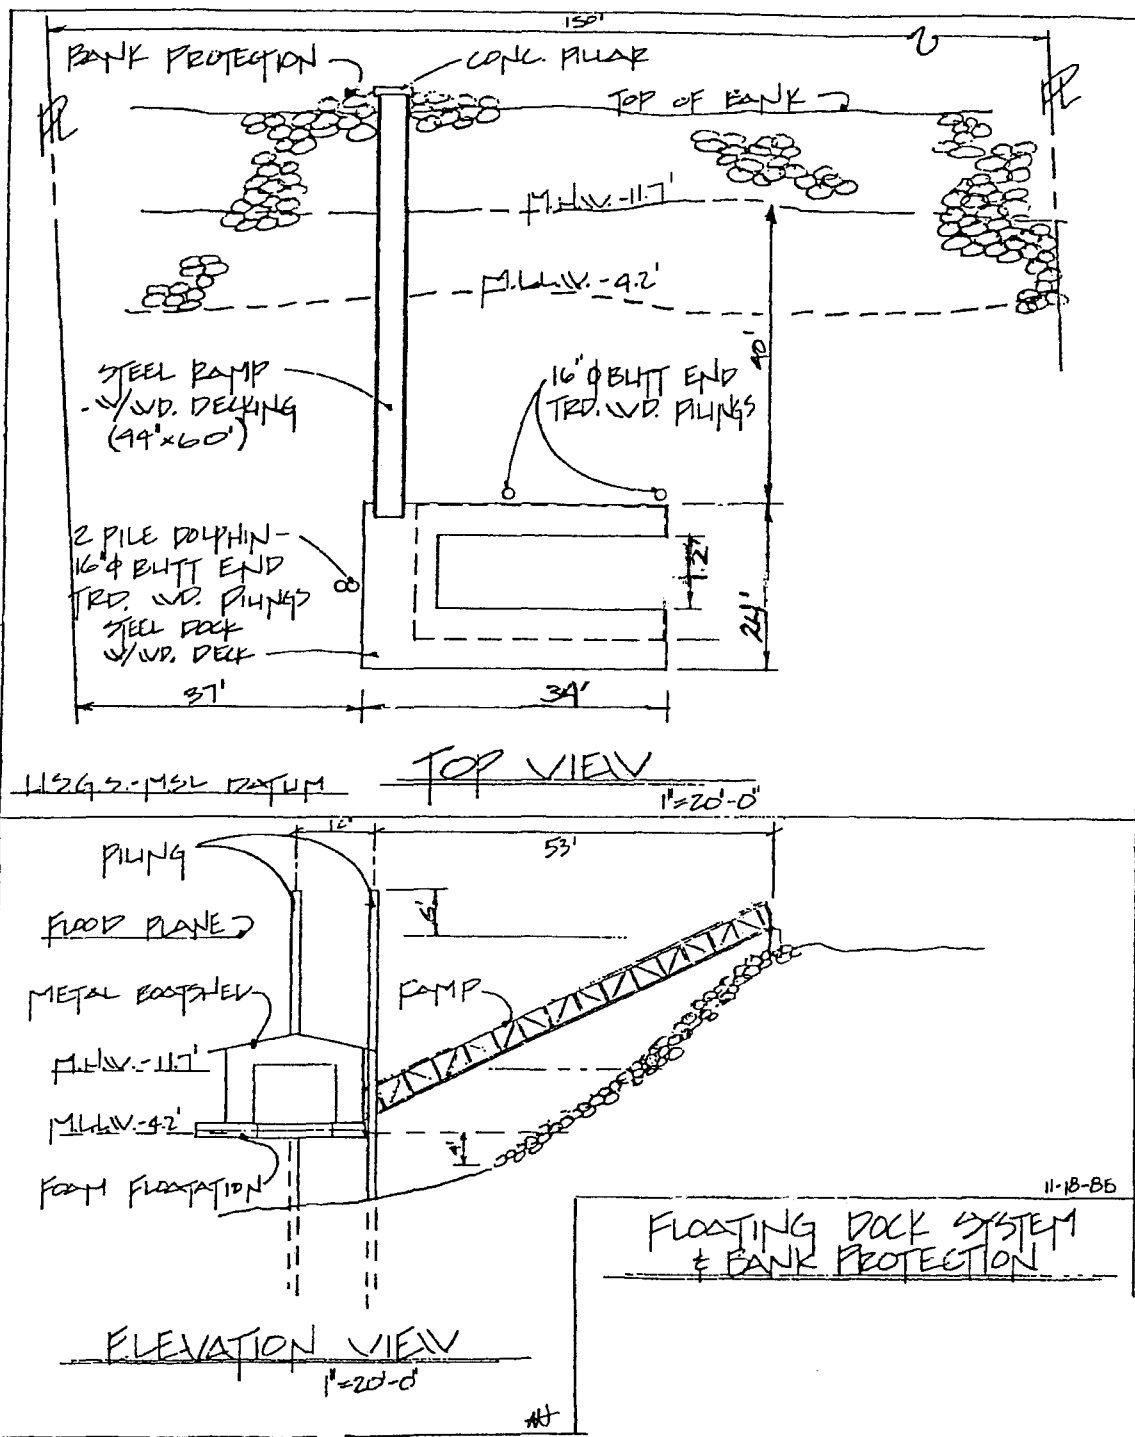 150'
BANK PROTECTION
CONC. PILLAR
TOP OF BANK
PL
PL
M.H.W. -11.7'
M.L.L.W. -4.2'
40'
STEEL RAMP
W/WD. DECKING
(44"x60')
16"φ BUTT END
TRD. WD. PILINGS
2 PILE DOLPHIN-
16"φ BUTT END
TRD. WD. PILINGS
STEEL DOCK
W/WD. DECK
24'
37'
34'
U.S.G.S.-MSL DATUM
TOP VIEW
1"=20'-0"
12'
53'
PILING
6'
FLOOD PLANE
METAL BOATSHED
RAMP
M.H.W. -11.7'
M.L.L.W. -4.2'
FOAM FLOATATION
FLOATING DOCK SYSTEM
& BANK PROTECTION
ELEVATION VIEW
1"=20'-0"